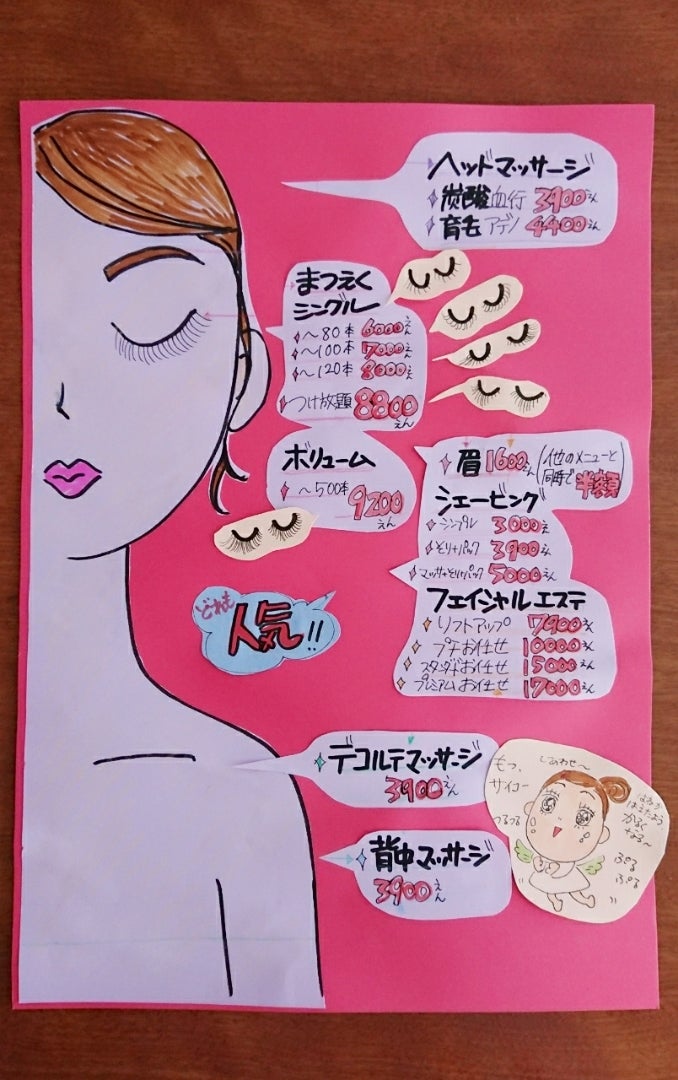 ヘッドマッサージ
炭酸 血行 3900えん
育毛 アデノ 4400えん
まつえく
シングル
～80本 6000えん
～100本 7000えん
～120本 8000えん
つけ放題 8800えん
ボリューム
～500本 9200えん
眉 1600えん (他のメニューと同時で半額)
シェービング
シンプル 3000え
そり+パック 3900えん
マッサ+そり+パック 5000えん
フェイシャルエステ
リフトアップ 7900えん
プチお任せ 10000えん
スタンダードお任せ 15000えん
プレミアムお任せ 17000えん
どれも
人気!!
デコルテマッサージ
3900えん
背中マッサージ
3900えん
しあわせ～
もっ、
サイコー
つるつる
かるく
なる～
ぷる
ぷる